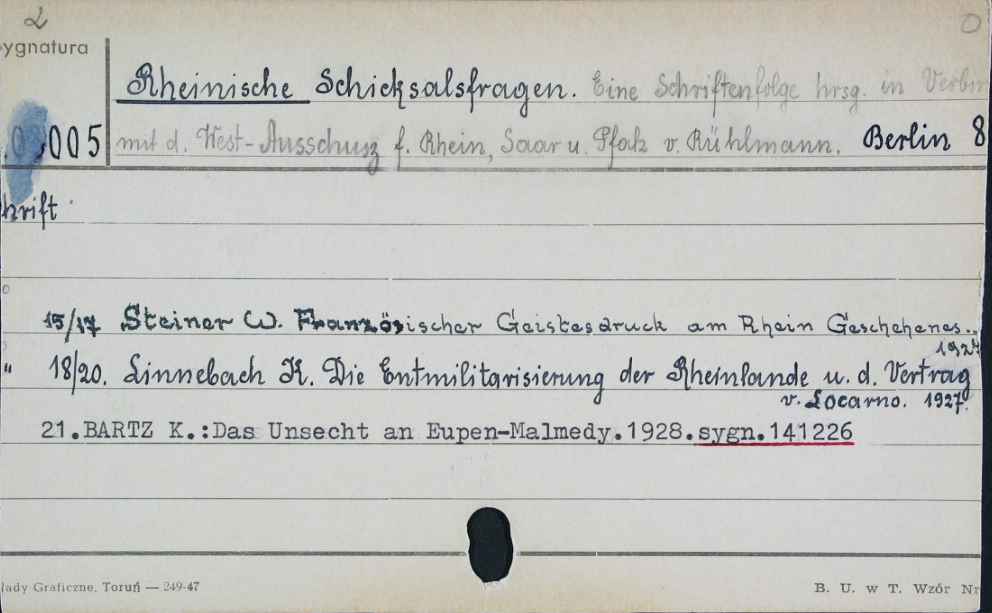 2 0
ygnatura
Rheinische Schicksalsfragen. Eine Schriftenfolge hrsg. in Verbin
005 mit d. West-Ausschusz f. Rhein, Saar u. Pfalz v. Rühlmann. Berlin 8
hrift
15/17 Steiner W. Französischer Geistesdruck am Rhein Geschehenes..
1927
" 18/20. Linnebach K. Die Entmilitarisierung der Rheinlande u. d. Vertrag
v. Locarno. 1927.
21.BARTZ K.:Das Unsecht an Eupen-Malmedy.1928.sygn.141226
łady Graficzne, Toruń — 249-47 B. U. w T. Wzór Nr